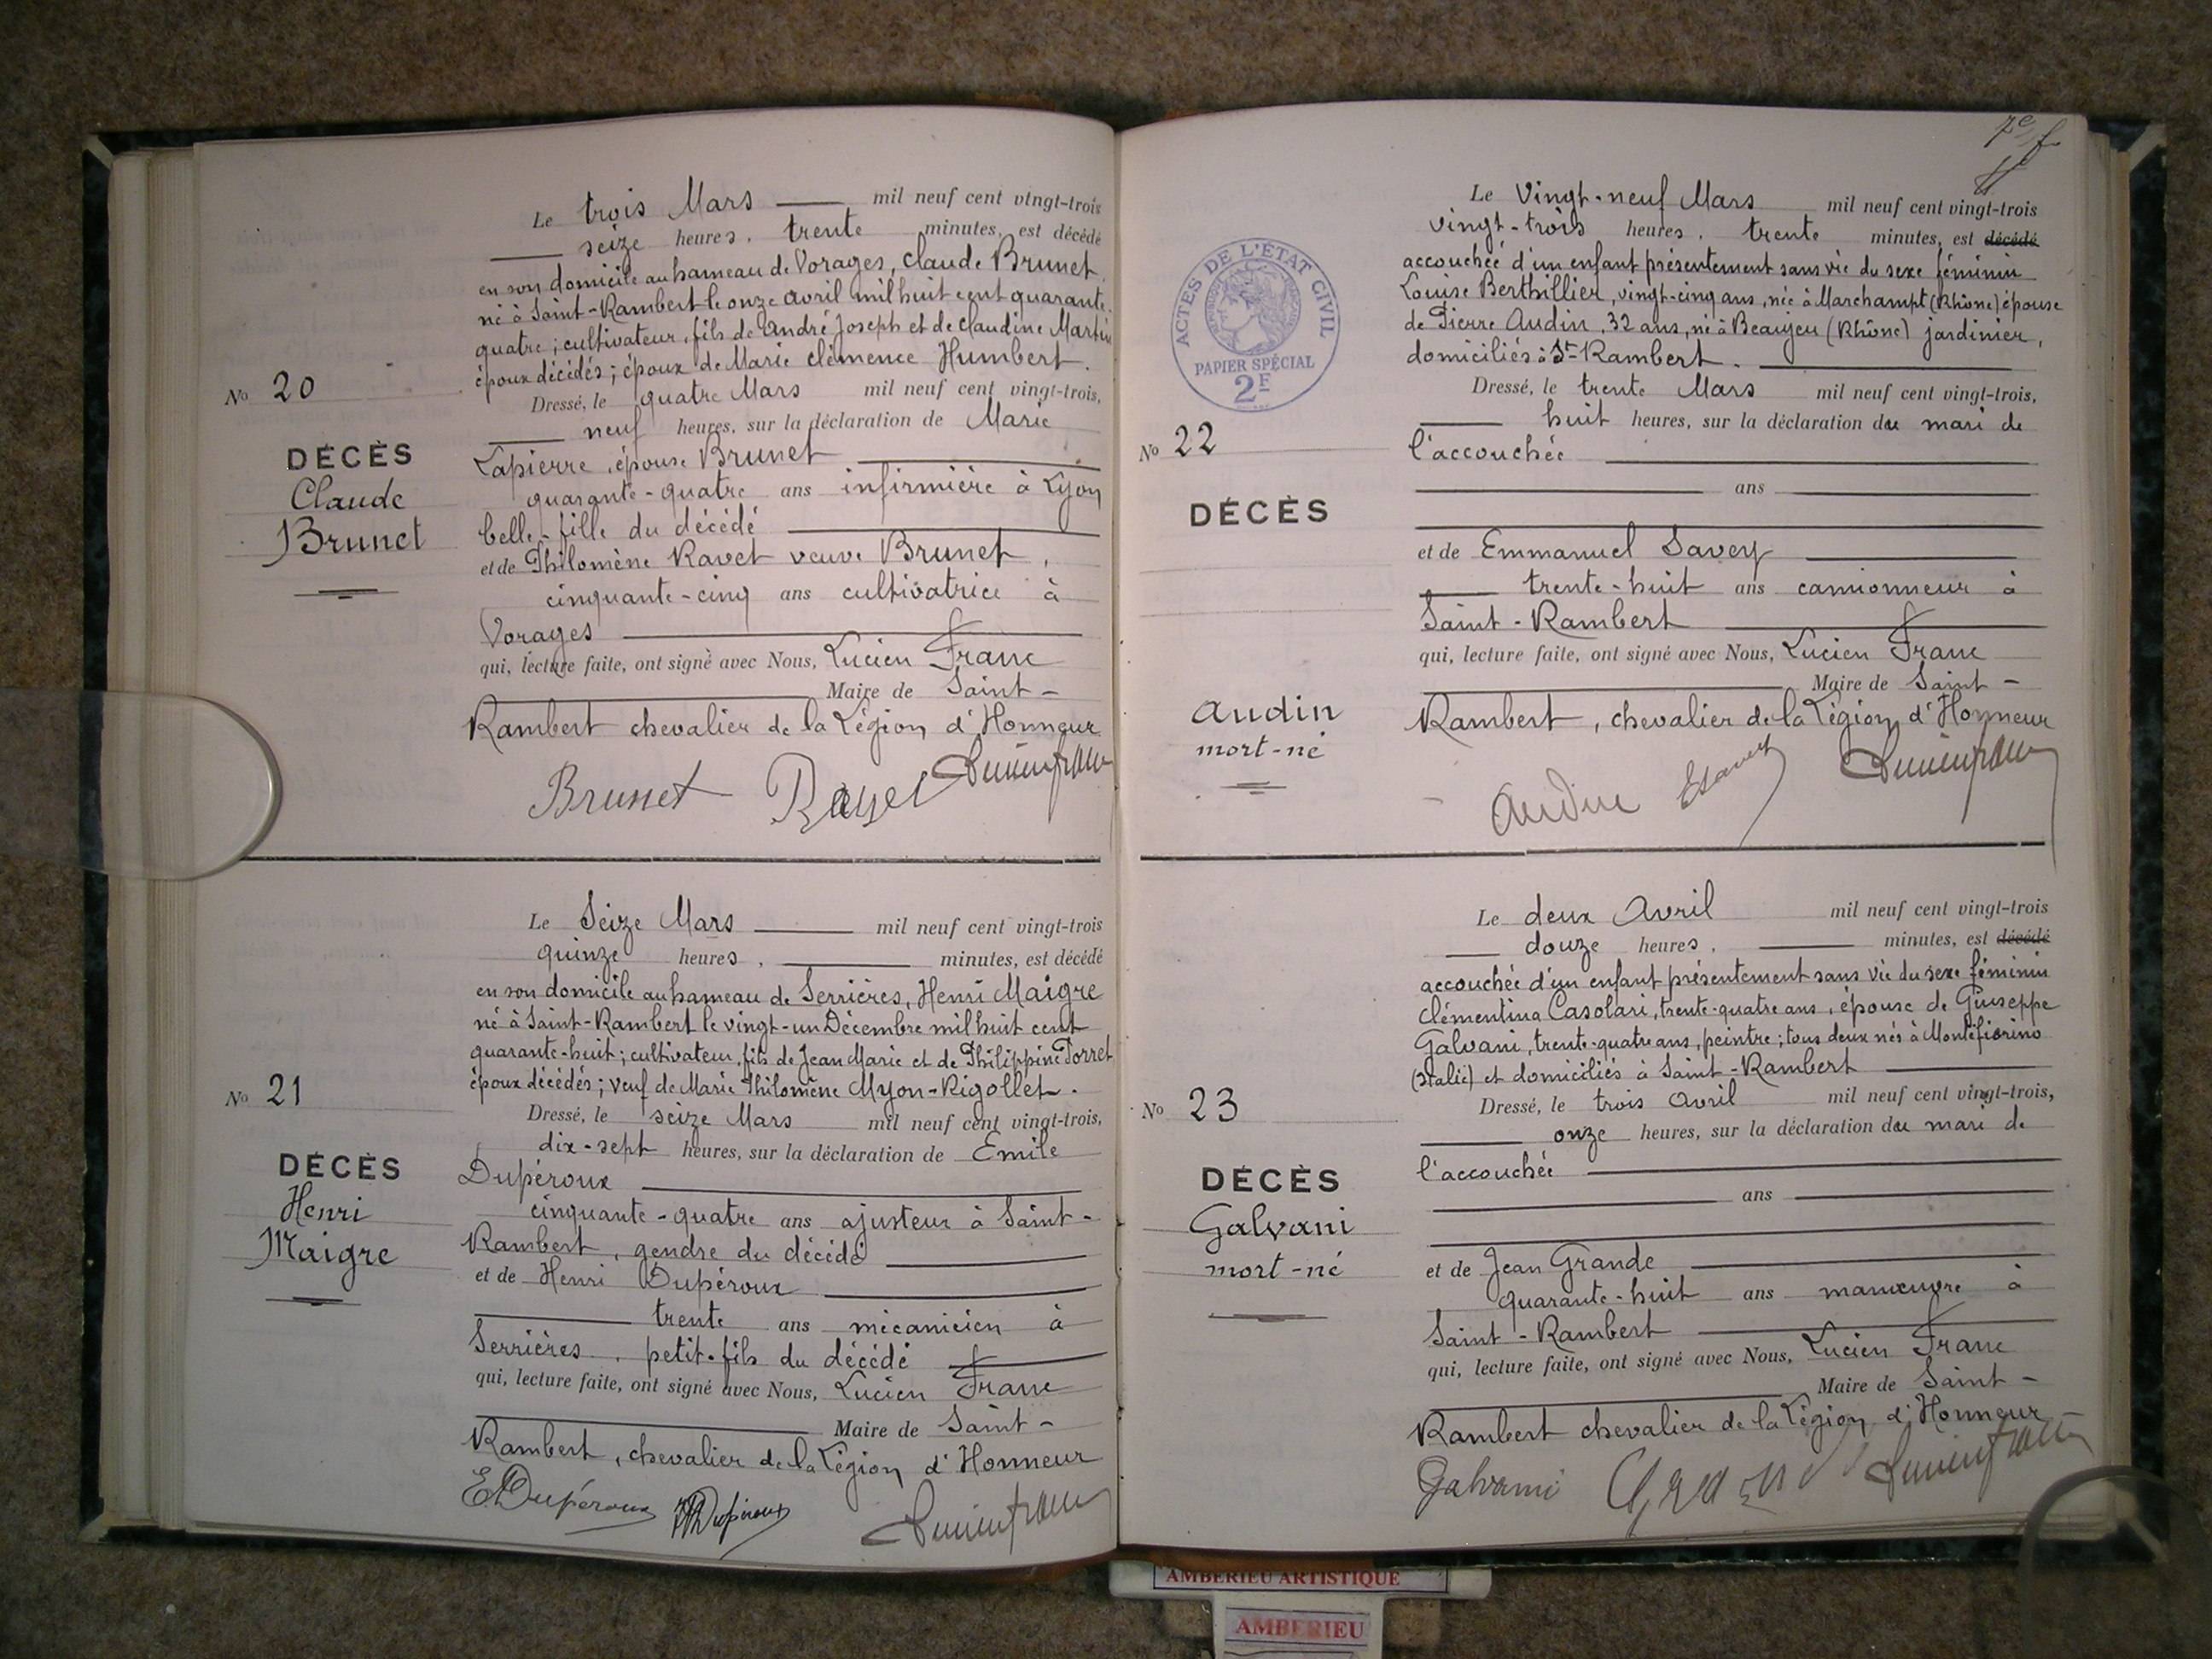 Le trois Mars mil neuf cent vingt-trois
seize heures, trente minutes, est décédé
en son domicile au hameau de Vorages, Claude Brunet,
né à Saint-Rambert le onze avril mil huit cent quarante-
quatre ; cultivateur, fils de André Joseph et de Claudine Martin
époux décédés ; époux de Marie Clémence Humbert.
No 20
Dressé, le quatre Mars mil neuf cent vingt-trois,
neuf heures, sur la déclaration de Marie
DÉCÈS
Claude
Brunet
Lapierre, épouse Brunet
quarante-quatre ans infirmière à Lyon
belle-fille du décédé
et de Philomène Ravet veuve Brunet,
cinquante-cinq ans cultivatrice à
Vorages
qui, lecture faite, ont signé avec Nous, Lucien Franc
Maire de Saint-
Rambert chevalier de la Légion d'Honneur
Brunet
Le Seize Mars mil neuf cent vingt-trois
quinze heures, minutes, est décédé
en son domicile au hameau de Serrières, Henri Maigre
né à Saint-Rambert le vingt-un Décembre mil huit cent
quarante-huit ; cultivateur, fils de Jean Marie et de Philippine Torret
époux décédés ; veuf de Marie Philomène Myon-Rigollet.
No 21
Dressé, le seize Mars mil neuf cent vingt-trois,
dix-sept heures, sur la déclaration de Emile
DÉCÈS
Henri
Maigre
Dupéroux
cinquante-quatre ans ajusteur à Saint-
Rambert, gendre du décédé
et de Henri Dupéroux
trente ans mécanicien à
Serrières, petit-fils du décédé
qui, lecture faite, ont signé avec Nous, Lucien Franc
Maire de Saint-
Rambert, chevalier de la Légion d'Honneur
E. Dupéroux Dupéroux
ACTES DE L'ÉTAT CIVIL
PAPIER SPÉCIAL
2F
Le Vingt-neuf Mars mil neuf cent vingt-trois
vingt-trois heures, trente minutes, est décédé
accouchée d'un enfant présentement sans vie du sexe féminin
Louise Berthillier, vingt-cinq ans, née à Marchampt (Rhône) épouse
de Pierre Audin, 32 ans, né à Beaujeu (Rhône) jardinier,
domiciliés à St-Rambert.
Dressé, le trente Mars mil neuf cent vingt-trois,
huit heures, sur la déclaration du mari de
No 22
l'accouchée
ans
DÉCÈS
Audin
mort-né
et de Emmanuel Savey
trente-huit ans camionneur à
Saint-Rambert
qui, lecture faite, ont signé avec Nous, Lucien Franc
Maire de Saint-
Rambert, chevalier de la Légion d'Honneur
Audin ESavey
Le deux Avril mil neuf cent vingt-trois
douze heures, minutes, est décédé
accouchée d'un enfant présentement sans vie du sexe féminin
Clémentina Casolari, trente-quatre ans, épouse de Giuseppe
Galvani, trente-quatre ans, peintre ; tous deux nés à Montefiorino
(Italie) et domiciliés à Saint-Rambert
Dressé, le trois Avril mil neuf cent vingt-trois,
onze heures, sur la déclaration du mari de
No 23
l'accouchée
ans
DÉCÈS
Galvani
mort-né
et de Jean Grande
quarante-huit ans manœuvre à
Saint-Rambert
qui, lecture faite, ont signé avec Nous, Lucien Franc
Maire de Saint-
Rambert chevalier de la Légion d'Honneur
Galvani
AMBERIEU ARTISTIQUE
AMBERIEU